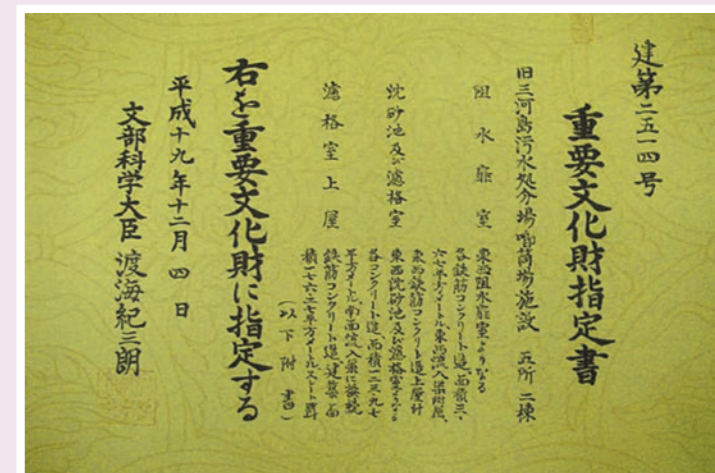 建第二五一四号
重要文化財指定書
旧三河島汚水処分場喞筒場施設　五所 二棟
阻水扉室
東西阻水扉室よりなる
各鉄筋コンクリート造、面積三、
六七平方メートル、東西流入渠附属、
東西鉄筋コンクリート造上屋付
沈砂池及び濾格室
東西沈砂池及び濾格室よりなる
各コンクリート造、面積一二三・九七
平方メートル、南面流入渠に接続
濾格室上屋
鉄筋コンクリート造、建築面
積一七六・二七平方メートル、スレート葺
（以下附書）
右を重要文化財に指定する
平成十九年十二月四日
文部科学大臣 渡海紀三朗